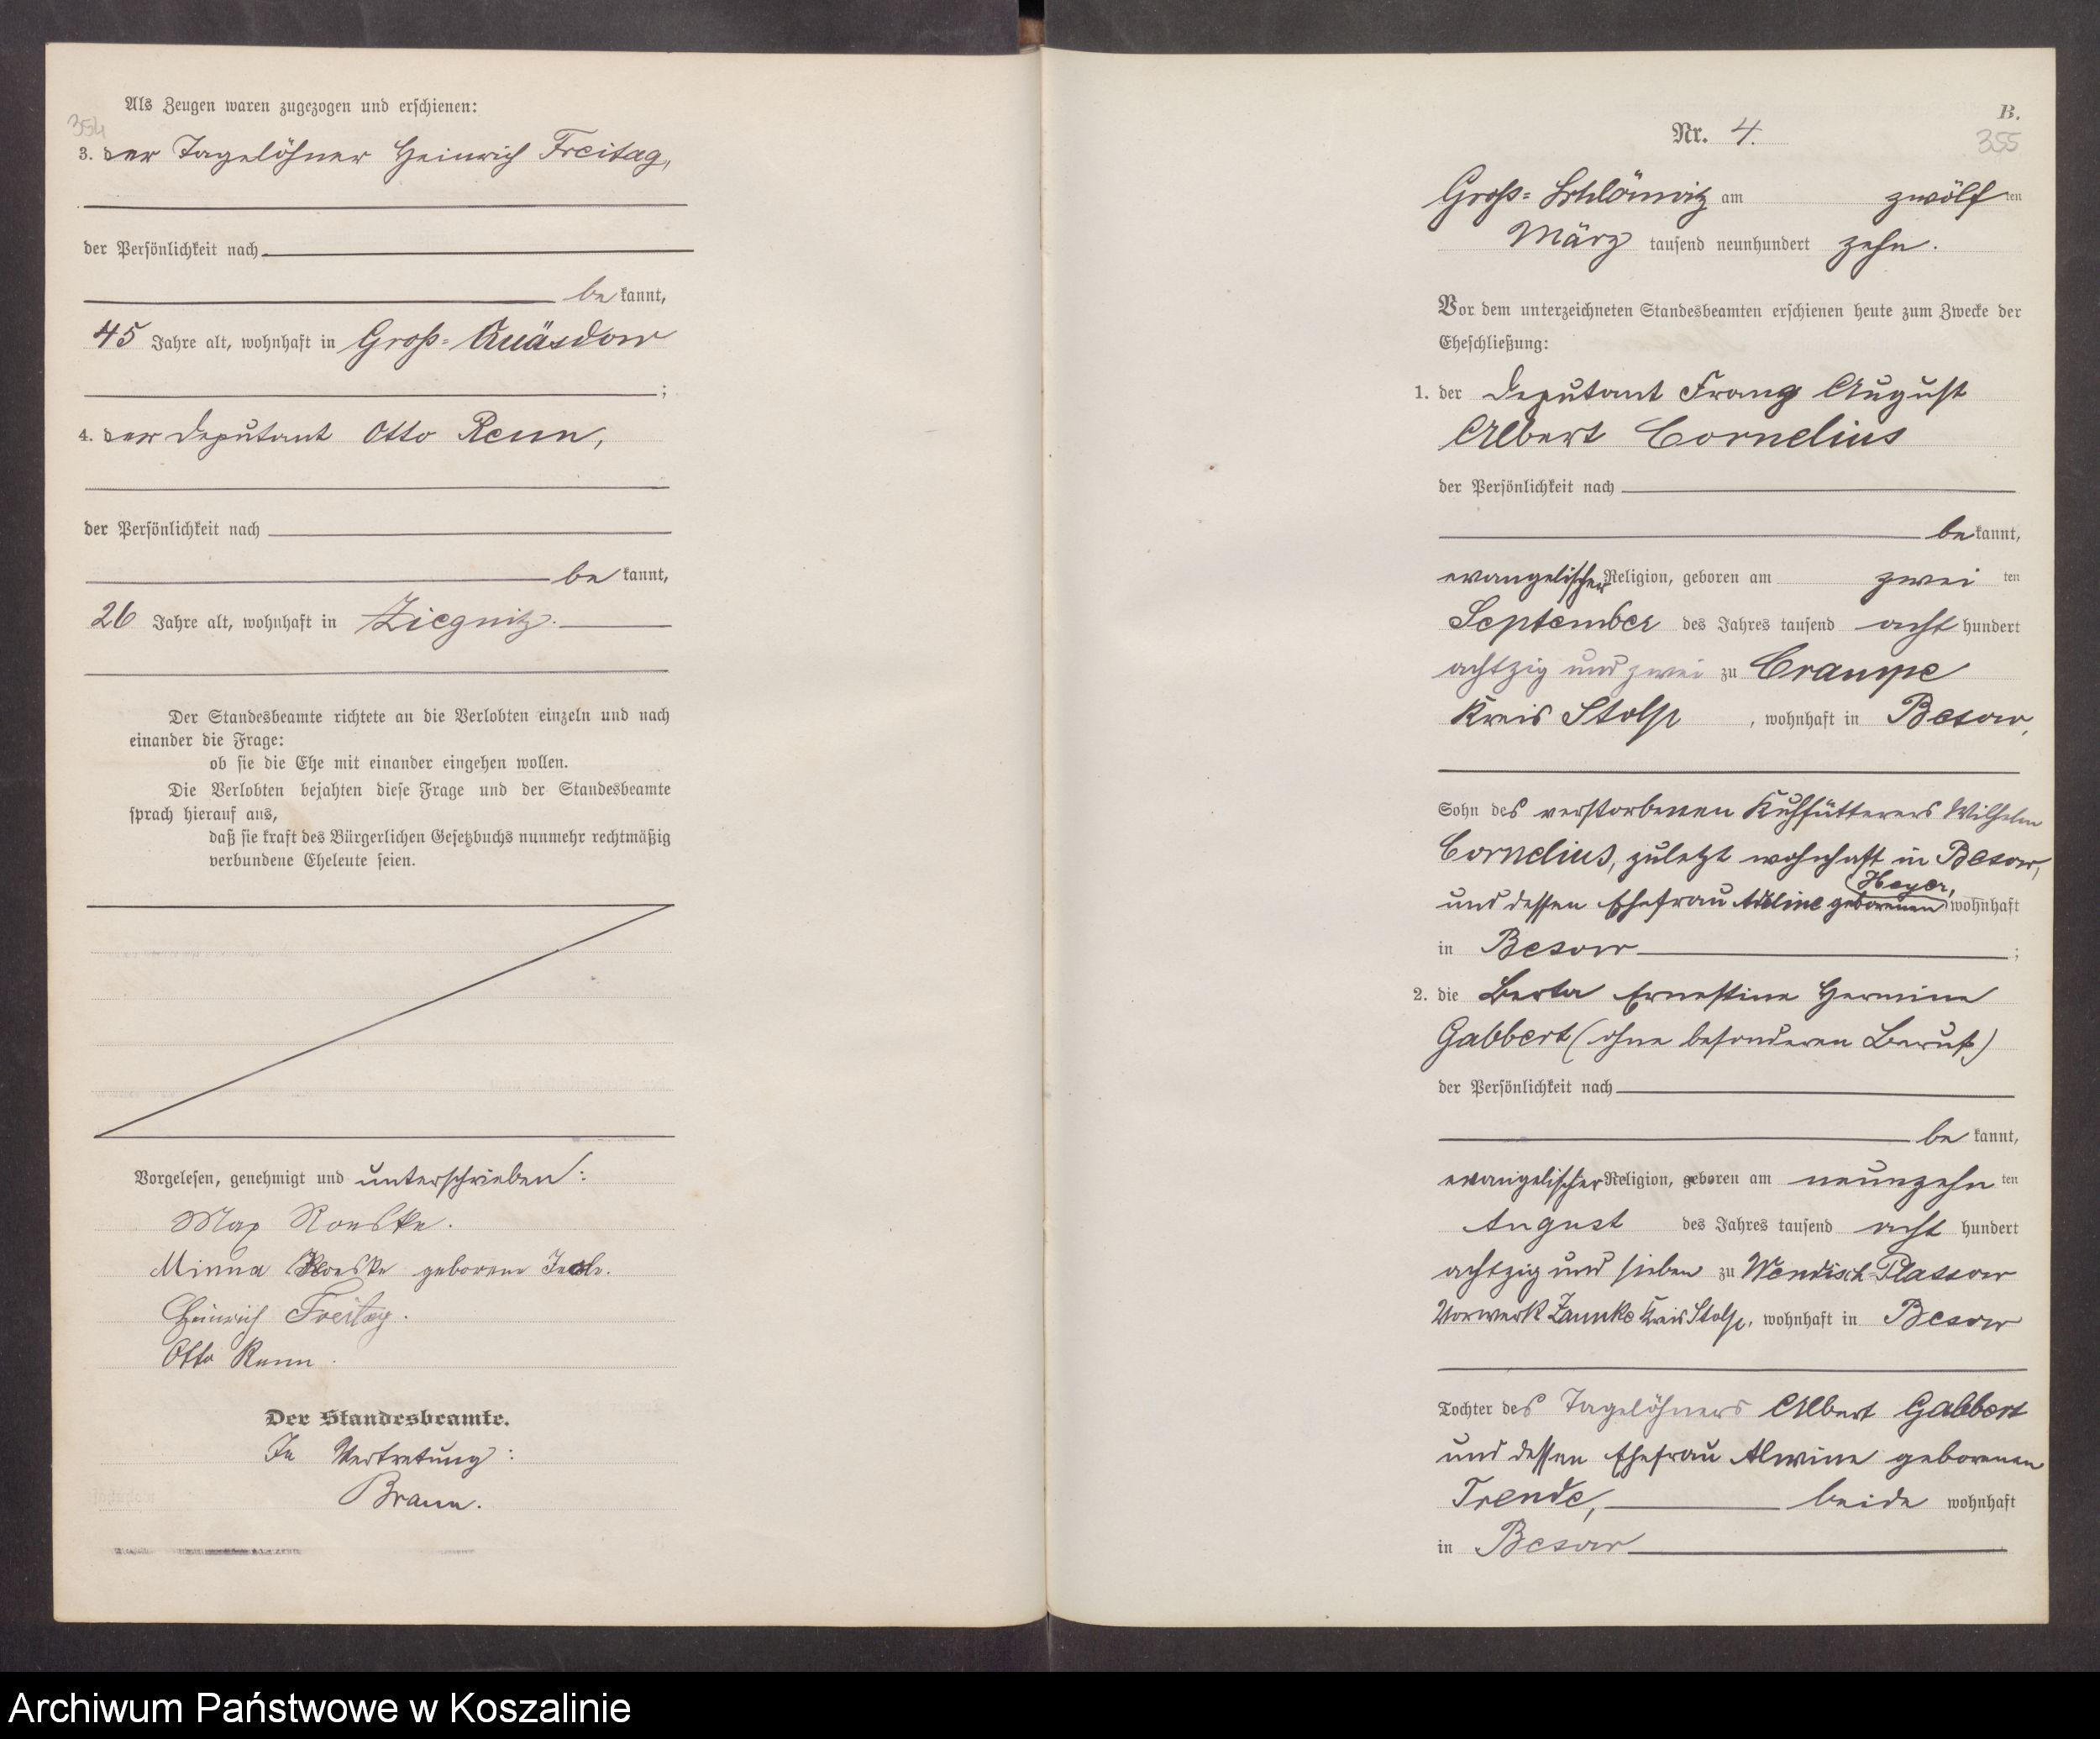 Als Zeugen waren zugezogen und erschienen:
354
3. der Tagelöhner Heinrich Freitag,
der Persönlichkeit nach
bekannt,
45 Jahre alt, wohnhaft in Groß-Quäsdow
;
4. der Deputant Otto Renn,
der Persönlichkeit nach
bekannt,
26 Jahre alt, wohnhaft in Ziegnitz.
Der Standesbeamte richtete an die Verlobten einzeln und nach
einander die Frage:
ob sie die Ehe mit einander eingehen wollen.
Die Verlobten bejahten diese Frage und der Standesbeamte
sprach hierauf aus,
daß sie kraft des Bürgerlichen Gesetzbuchs nunmehr rechtmäßig
verbundene Eheleute seien.
Vorgelesen, genehmigt und unterschrieben:
Max Roeske.
Minna Roeske geborene
Heinrich Freitag.
Otto Renn.
Der Standesbeamte.
In Vertretung:
Braun.
B.
Nr. 4.
355
Groß-Schlönwitz am zwölften
März tausend neunhundert zehn.
Vor dem unterzeichneten Standesbeamten erschienen heute zum Zwecke der
Eheschließung:
1. der Deputant Franz August
Albert Cornelius
der Persönlichkeit nach
bekannt,
evangelischer Religion, geboren am zweiten
September des Jahres tausend achthundert
achtzig und zwei zu Crampe
Kreis Stolp, wohnhaft in Besow,
Sohn des verstorbenen Kuhfütterers Wilhelm
Cornelius, zuletzt wohnhaft in Besow,
und dessen Ehefrau Adeline geborenen Heyer, wohnhaft
in Besow ;
2. die Berta Ernestine Hermine
Gabbert (ohne besonderen Beruf)
der Persönlichkeit nach
bekannt,
evangelischer Religion, geboren am neunzehnten
August des Jahres tausend achthundert
achtzig und sieben zu Wendisch-Plassow
Vorwerk Kreis Stolp, wohnhaft in Besow
Tochter des Tagelöhners Albert Gabbert
und dessen Ehefrau Alwine geborenen
Trende, beide wohnhaft
in Besow
Archiwum Państwowe w Koszalinie